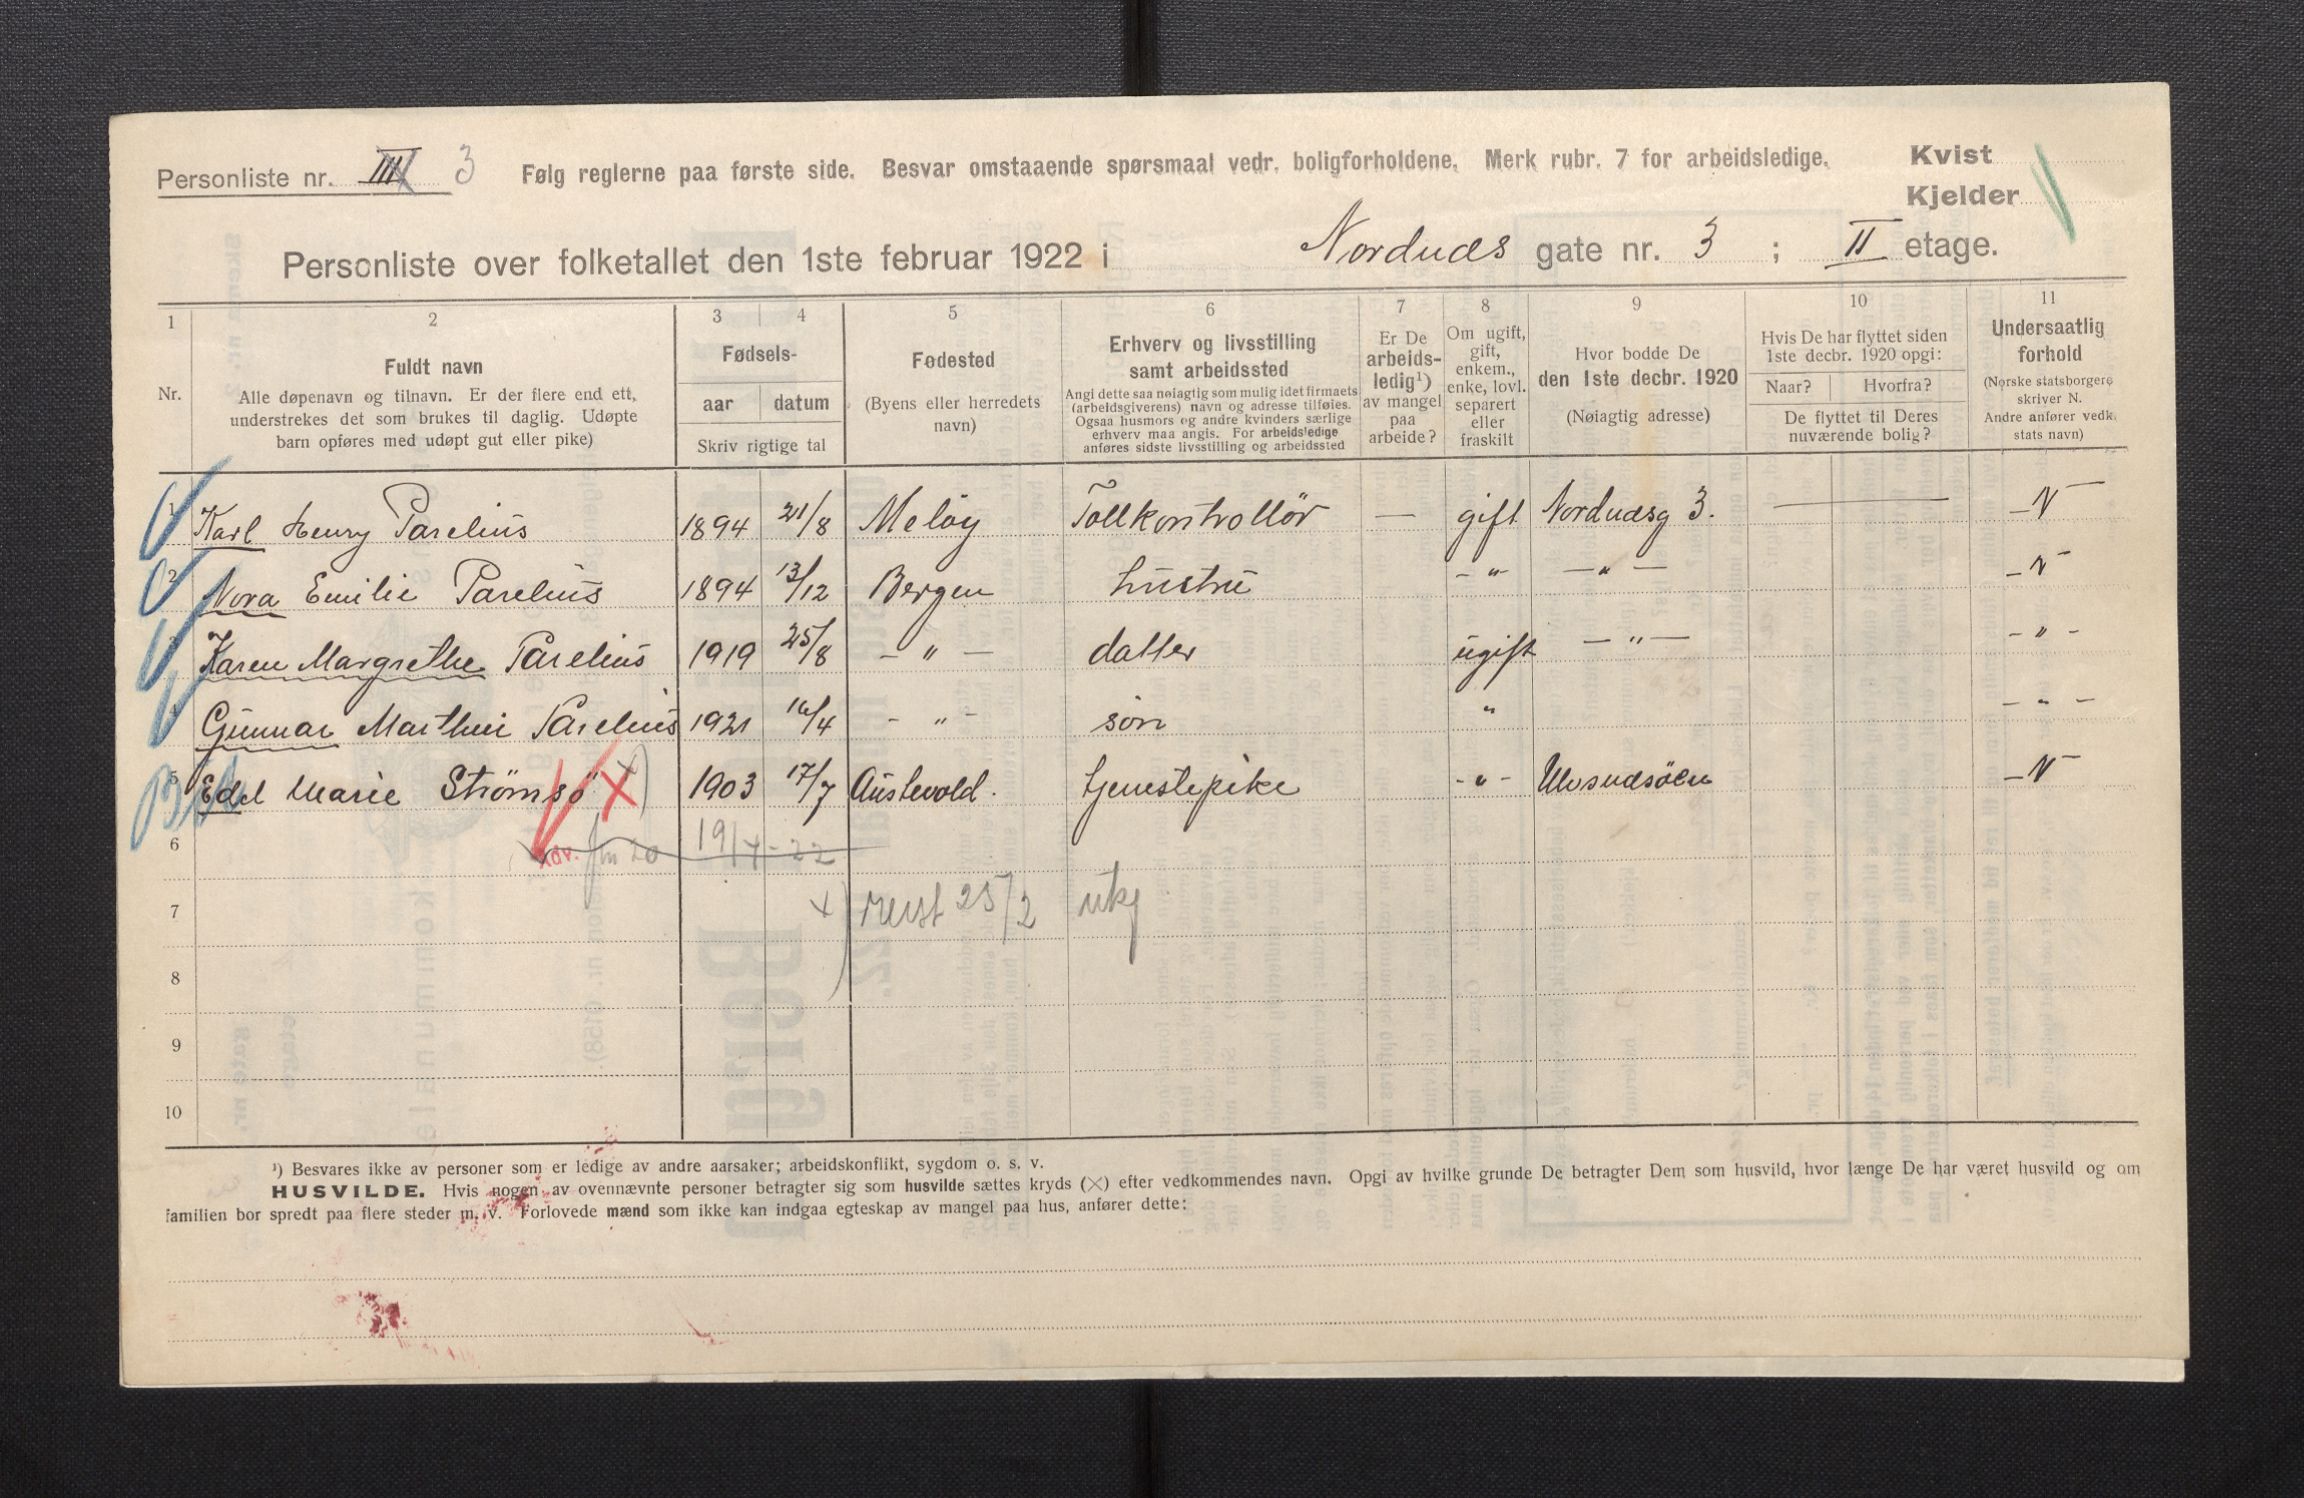 Personliste nr. III 3 Følg reglerne paa første side. Besvar omstaaende spørsmaal vedr. boligforholdene. Merk rubr. 7 for arbeidsledige. Kvist
Kjelder
Personliste over folketallet den 1ste februar 1922 i Nordnæs gate nr. 3 ; II etage.
1 2 3 4 5 6 7 8 9 10 11
Nr.
Fuldt navn
Alle døpenavn og tilnavn. Er der flere end ett,
understrekes det som brukes til daglig. Udøpte
barn opføres med udøpt gut eller pike)
Fødsels-
aar datum
Skriv rigtige tal
Fødested
(Byens eller herredets
navn)
Erhverv og livsstilling
samt arbeidssted
Angi dette saa nøiagtig som mulig idet firmaets
(arbeidsgiverens) navn og adresse tilføies.
Ogsaa husmors og andre kvinders særlige
erhverv maa angis. For arbeidsledige
anføres sidste livsstilling og arbeidssted
Er De
arbeids-
ledig¹)
av mangel
paa
arbeide?
Om ugift,
gift,
enkem.,
enke, lovl.
separert
eller
fraskilt
Hvor bodde De
den 1ste decbr. 1920
(Nøiagtig adresse)
Hvis De har flyttet siden
1ste decbr. 1920 opgi:
Naar? Hvorfra?
De flyttet til Deres
nuværende bolig?
Undersaatlig
forhold
(Norske statsborgere
skriver N.
Andre anfører vedk.
stats navn)
1 Karl Henry Parelius 1894 21/8 Meløy Tollkontrollör — gift Nordnæsg 3. — — N —
2 Nora Emilie Parelius 1894 13/12 Bergen hustru - " - — " — — N —
3 Karen Margrethe Parelius 1919 25/8 — " — datter ugift — " — - " -
4 Gunnar Marthin Parelius 1921 16/4 - " - søn " - " -
5 Edel Marie Strömsö X x) 1903 17/7 Austevold. tjenestepike - " - Ulvsnæsöen — N —
6 19/4-22
7 x) reist 25/2
8
9
10
¹) Besvares ikke av personer som er ledige av andre aarsaker; arbeidskonflikt, sygdom o. s. v.
HUSVILDE. Hvis nogen av ovennævnte personer betragter sig som husvilde sættes kryds (×) efter vedkommendes navn. Opgi av hvilke grunde De betragter Dem som husvild, hvor længe De har været husvild og om
familien bor spredt paa flere steder m. v. Forlovede mænd som ikke kan indgaa egteskap av mangel paa hus, anfører dette: